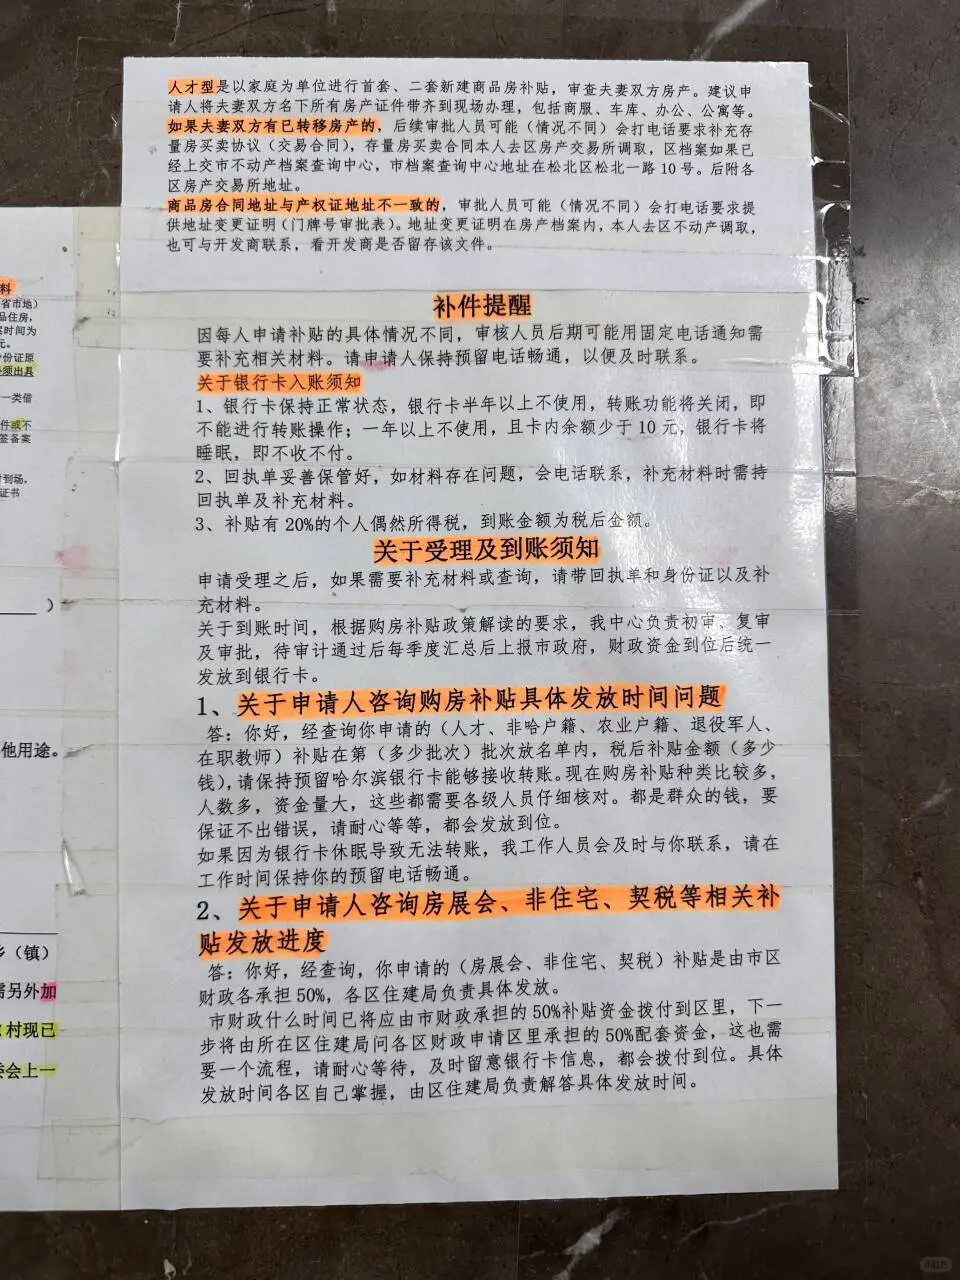 人才型是以家庭为单位进行首套、二套新建商品房补贴，审查夫妻双方房产。建议申
请人将夫妻双方名下所有房产证件带齐到现场办理，包括商服、车库、办公、公寓等。
如果夫妻双方有已转移房产的，后续审批人员可能（情况不同）会打电话要求补充存
量房买卖协议（交易合同），存量房买卖合同本人去区房产交易所调取，区档案如果已
经上交市不动产档案查询中心，市档案查询中心地址在松北区松北一路 10 号。后附各
区房产交易所地址。
商品房合同地址与产权证地址不一致的，审批人员可能（情况不同）会打电话要求提
供地址变更证明（门牌号审批表）。地址变更证明在房产档案内，本人去区不动产调取，
也可与开发商联系，看开发商是否留存该文件。
补件提醒
因每人申请补贴的具体情况不同，审核人员后期可能用固定电话通知需
要补充相关材料。请申请人保持预留电话畅通，以便及时联系。
关于银行卡入账须知
1、银行卡保持正常状态，银行卡半年以上不使用，转账功能将关闭，即
不能进行转账操作；一年以上不使用，且卡内余额少于 10 元，银行卡将
睡眠，即不收不付。
2、回执单妥善保管好，如材料存在问题，会电话联系，补充材料时需持
回执单及补充材料。
3、补贴有 20%的个人偶然所得税，到账金额为税后金额。
关于受理及到账须知
申请受理之后，如果需要补充材料或查询，请带回执单和身份证以及补
充材料。
关于到账时间，根据购房补贴政策解读的要求，我中心负责初审、复审
及审批，待审计通过后每季度汇总后上报市政府，财政资金到位后统一
发放到银行卡。
1、关于申请人咨询购房补贴具体发放时间问题
答：你好，经查询你申请的（人才、非哈户籍、农业户籍、退役军人、
在职教师）补贴在第（多少批次）批次放名单内，税后补贴金额（多少
钱），请保持预留哈尔滨银行卡能够接收转账。现在购房补贴种类比较多，
人数多，资金量大，这些都需要各级人员仔细核对。都是群众的钱，要
保证不出错误，请耐心等等，都会发放到位。
如果因为银行卡休眠导致无法转账，我工作人员会及时与你联系，请在
工作时间保持你的预留电话畅通。
2、关于申请人咨询房展会、非住宅、契税等相关补
贴发放进度
答：你好，经查询，你申请的（房展会、非住宅、契税）补贴是由市区
财政各承担 50%，各区住建局负责具体发放。
市财政什么时间已将应由市财政承担的 50%补贴资金拨付到区里，下一
步将由所在区住建局问各区财政申请区里承担的 50%配套资金，这也需
要一个流程，请耐心等待，及时留意银行卡信息，都会拨付到位。具体
发放时间各区自己掌握，由区住建局负责解答具体发放时间。
料
省市地）
品住房，
时间为
元。
份证原
须出具
一类借
件或不
签备案
到场。
证书
）
他用途。
乡（镇）
需另外加
村现已
委会上一